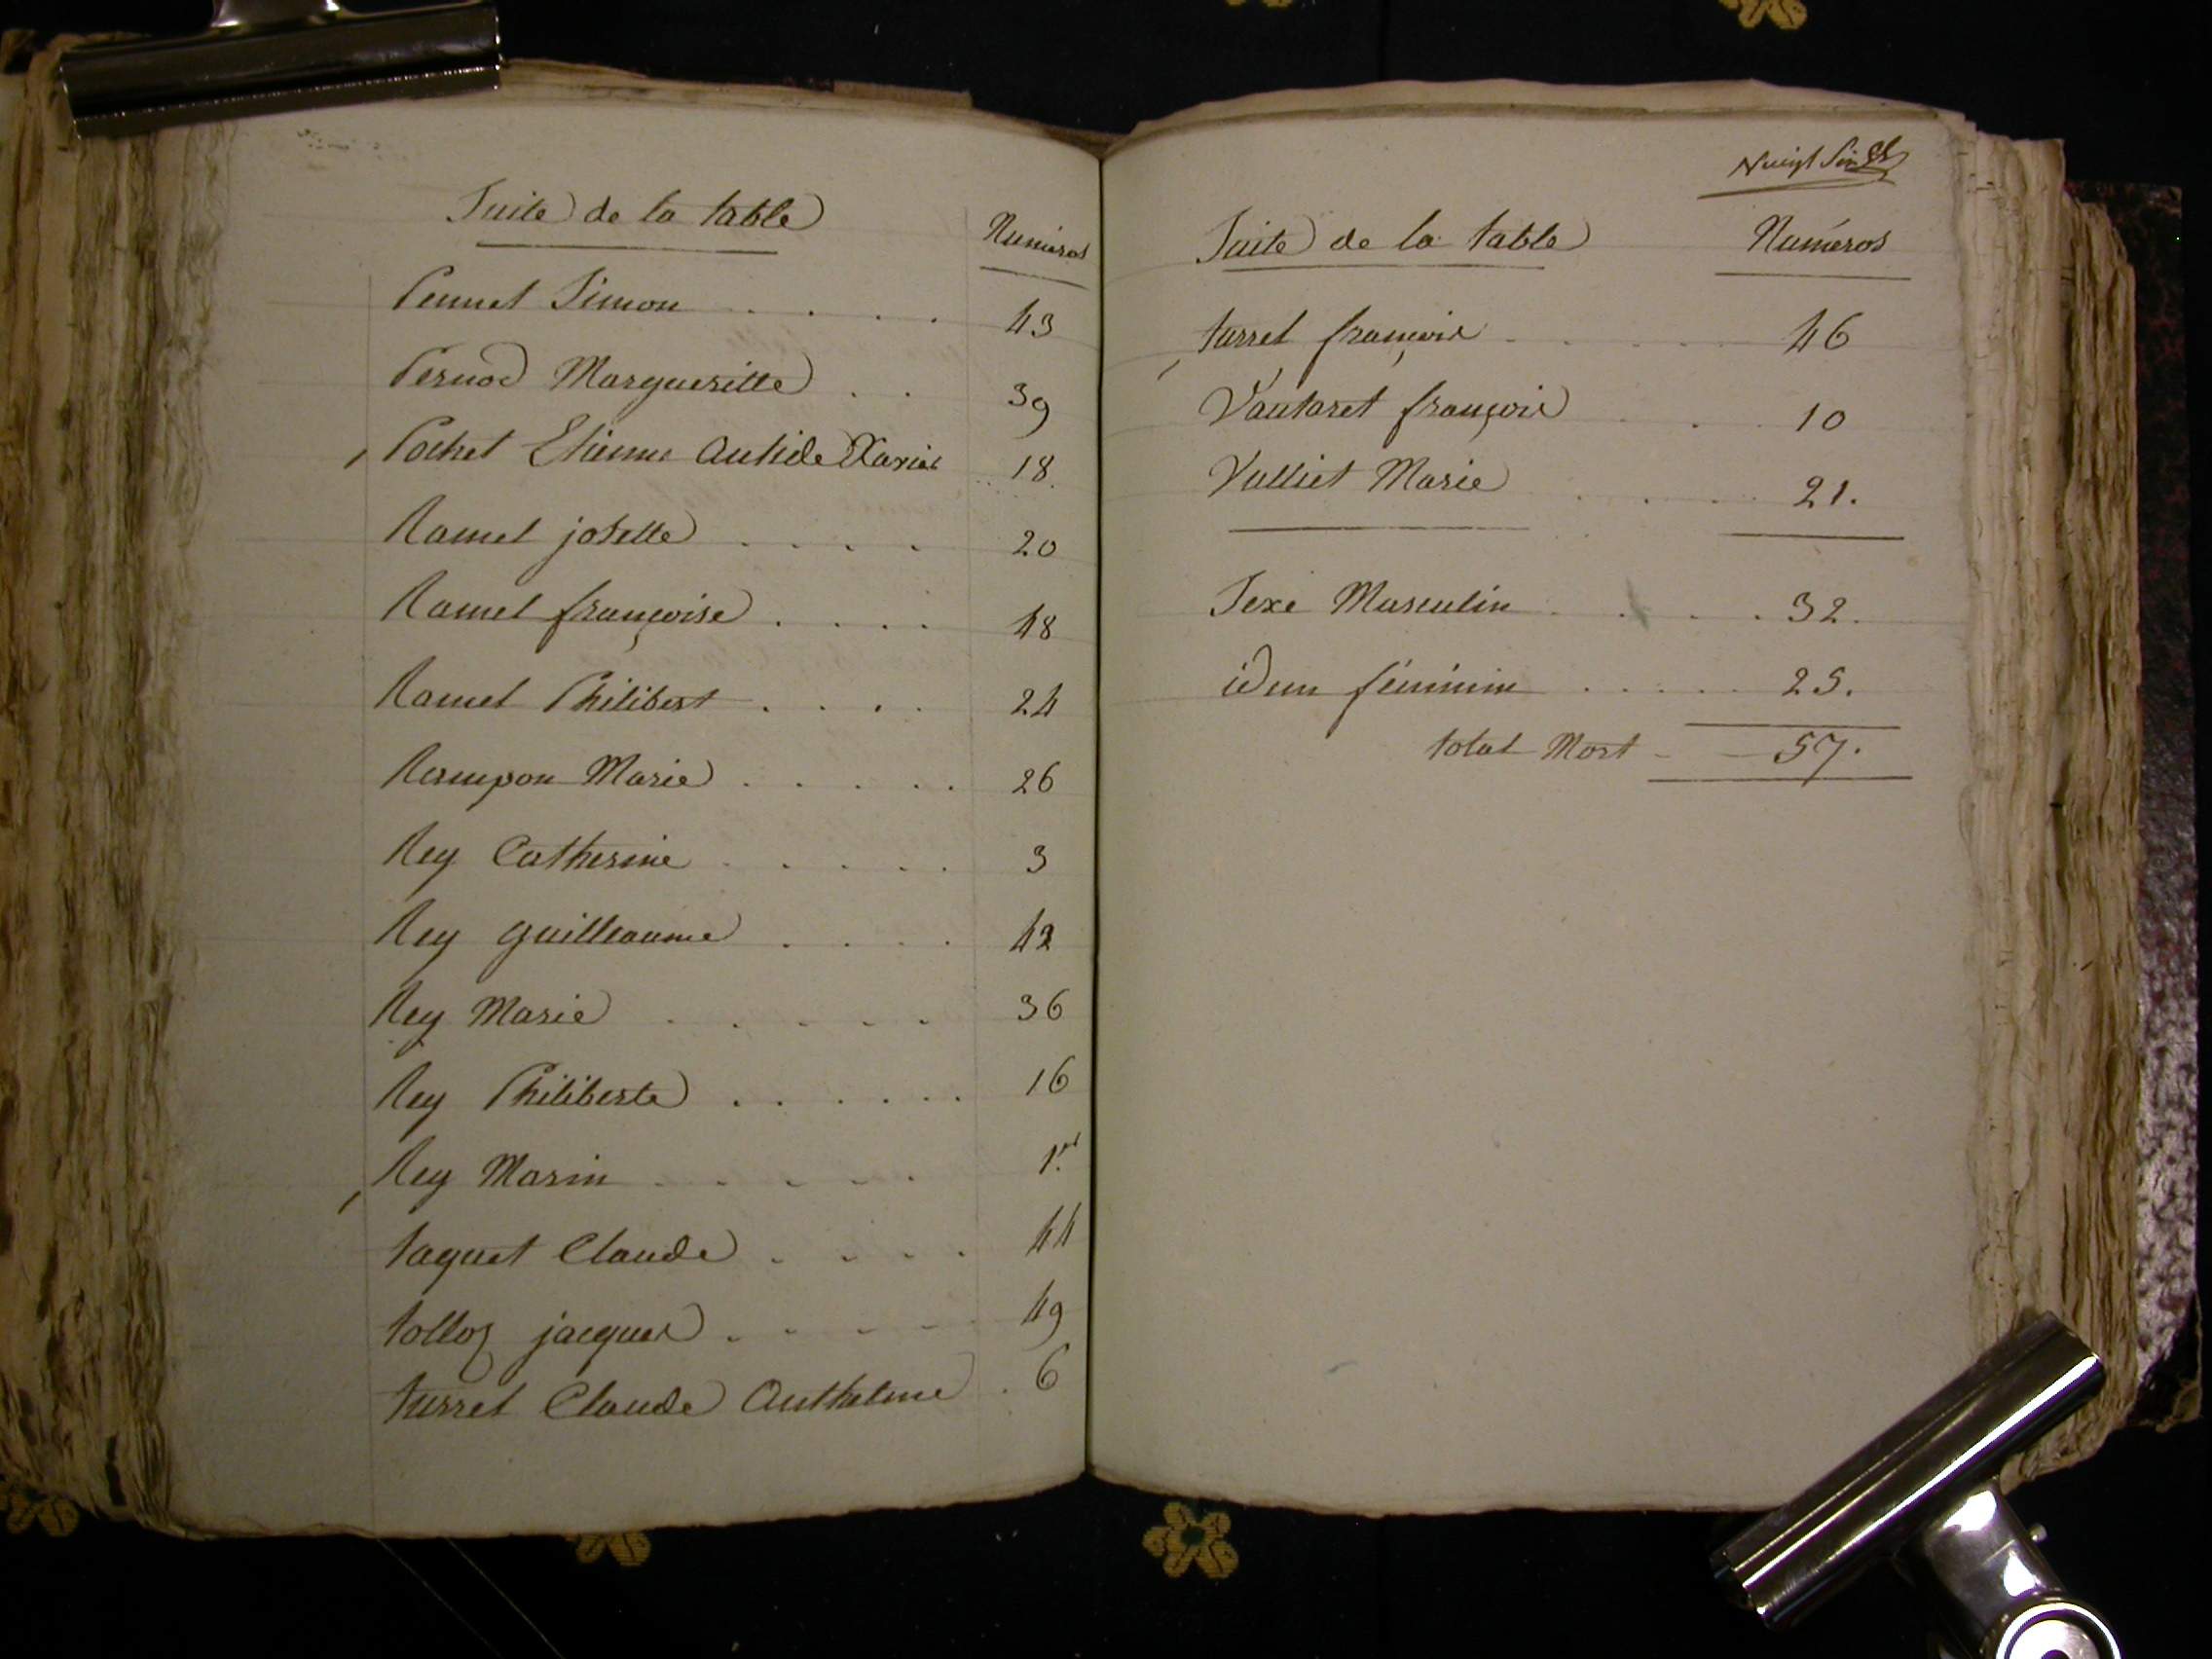 Suite de la table
Numéros
Pennet Simon . . . . 43
Pernod Margueritte . . 39
Pochet Etienne Antide Xavier 18.
Ramel josette . . . . 20
Ramel françoise . . . . 48
Ramel Philibert . . . . 24
Rampon Marie . . . . . 26
Rey Catherine . . . . . 3
Rey guilleaume . . . . 42
Rey Marie . . . . . 36
Rey Philiberte . . . . . . 16
Rey Marin . . . . . 1.er
taquet Claude . . . . 44
tolloz jacques . . . . . 49
turrel Claude Anthelme . 6
Vingt Six
Suite de la table
Numéros
tarrel françois . . . . . 46
Vautaret françois . . . 10
Valliet Marie . . . . 21.
Sexe Masculin . . . . 32.
idem féminin . . . . . 25.
total Mort - - 57.